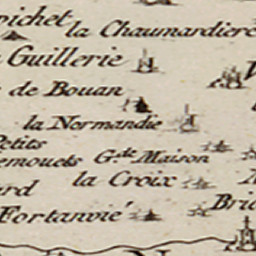 pichet
la Chaumardiere
Guillerie
de Bouan
la Normandie
Petits
emouets
G.de Maison
la Croix
ard
Bri
Fortanvié